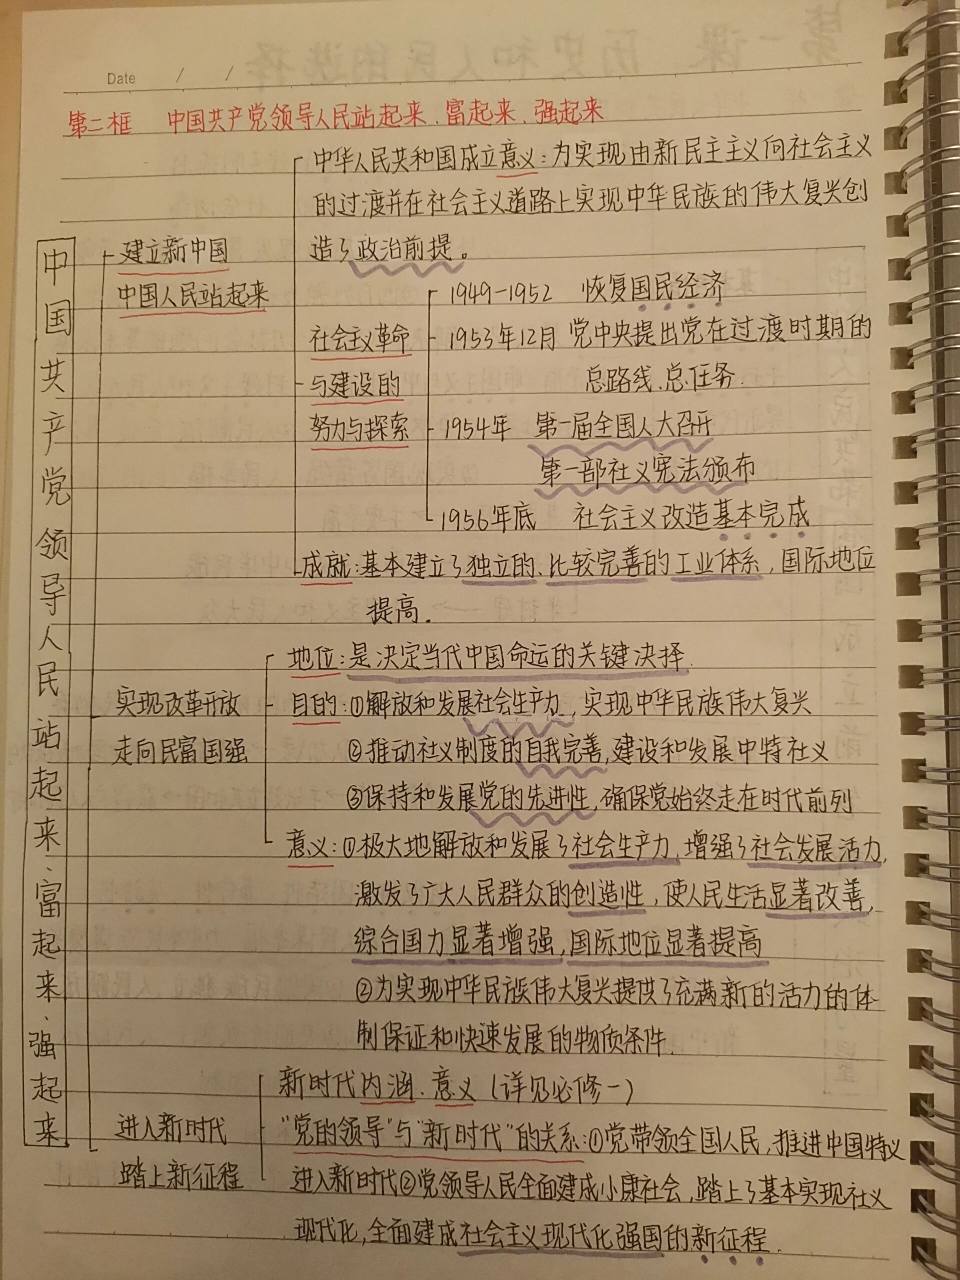 Date / /
第二框 中国共产党领导人民站起来、富起来、强起来
中国共产党领导人民站起来、富起来、强起来
建立新中国
中国人民站起来
中华人民共和国成立意义：为实现由新民主主义向社会主义
的过渡并在社会主义道路上实现中华民族的伟大复兴创
造了政治前提。
社会主义革命
与建设的
努力与探索
1949-1952 恢复国民经济
1953年12月 党中央提出党在过渡时期的
总路线、总任务.
1954年 第一届全国人大召开
第一部社义宪法颁布
1956年底 社会主义改造基本完成
成就：基本建立了独立的、比较完善的工业体系，国际地位
提高.
实现改革开放
走向民富国强
地位：是决定当代中国命运的关键决择.
目的：①解放和发展社会生产力，实现中华民族伟大复兴
②推动社义制度的自我完善，建设和发展中特社义
③保持和发展党的先进性，确保党始终走在时代前列
意义：①极大地解放和发展了社会生产力，增强了社会发展活力，
激发了广大人民群众的创造性，使人民生活显著改善，
综合国力显著增强，国际地位显著提高
②为实现中华民族伟大复兴提供了充满新的活力的体
制保证和快速发展的物质条件.
进入新时代
踏上新征程
新时代内涵、意义（详见必修一）
"党的领导"与"新时代"的关系：①党带领全国人民，推进中国特义
进入新时代②党领导人民全面建成小康社会，踏上了基本实现社义
现代化，全面建成社会主义现代化强国的新征程.